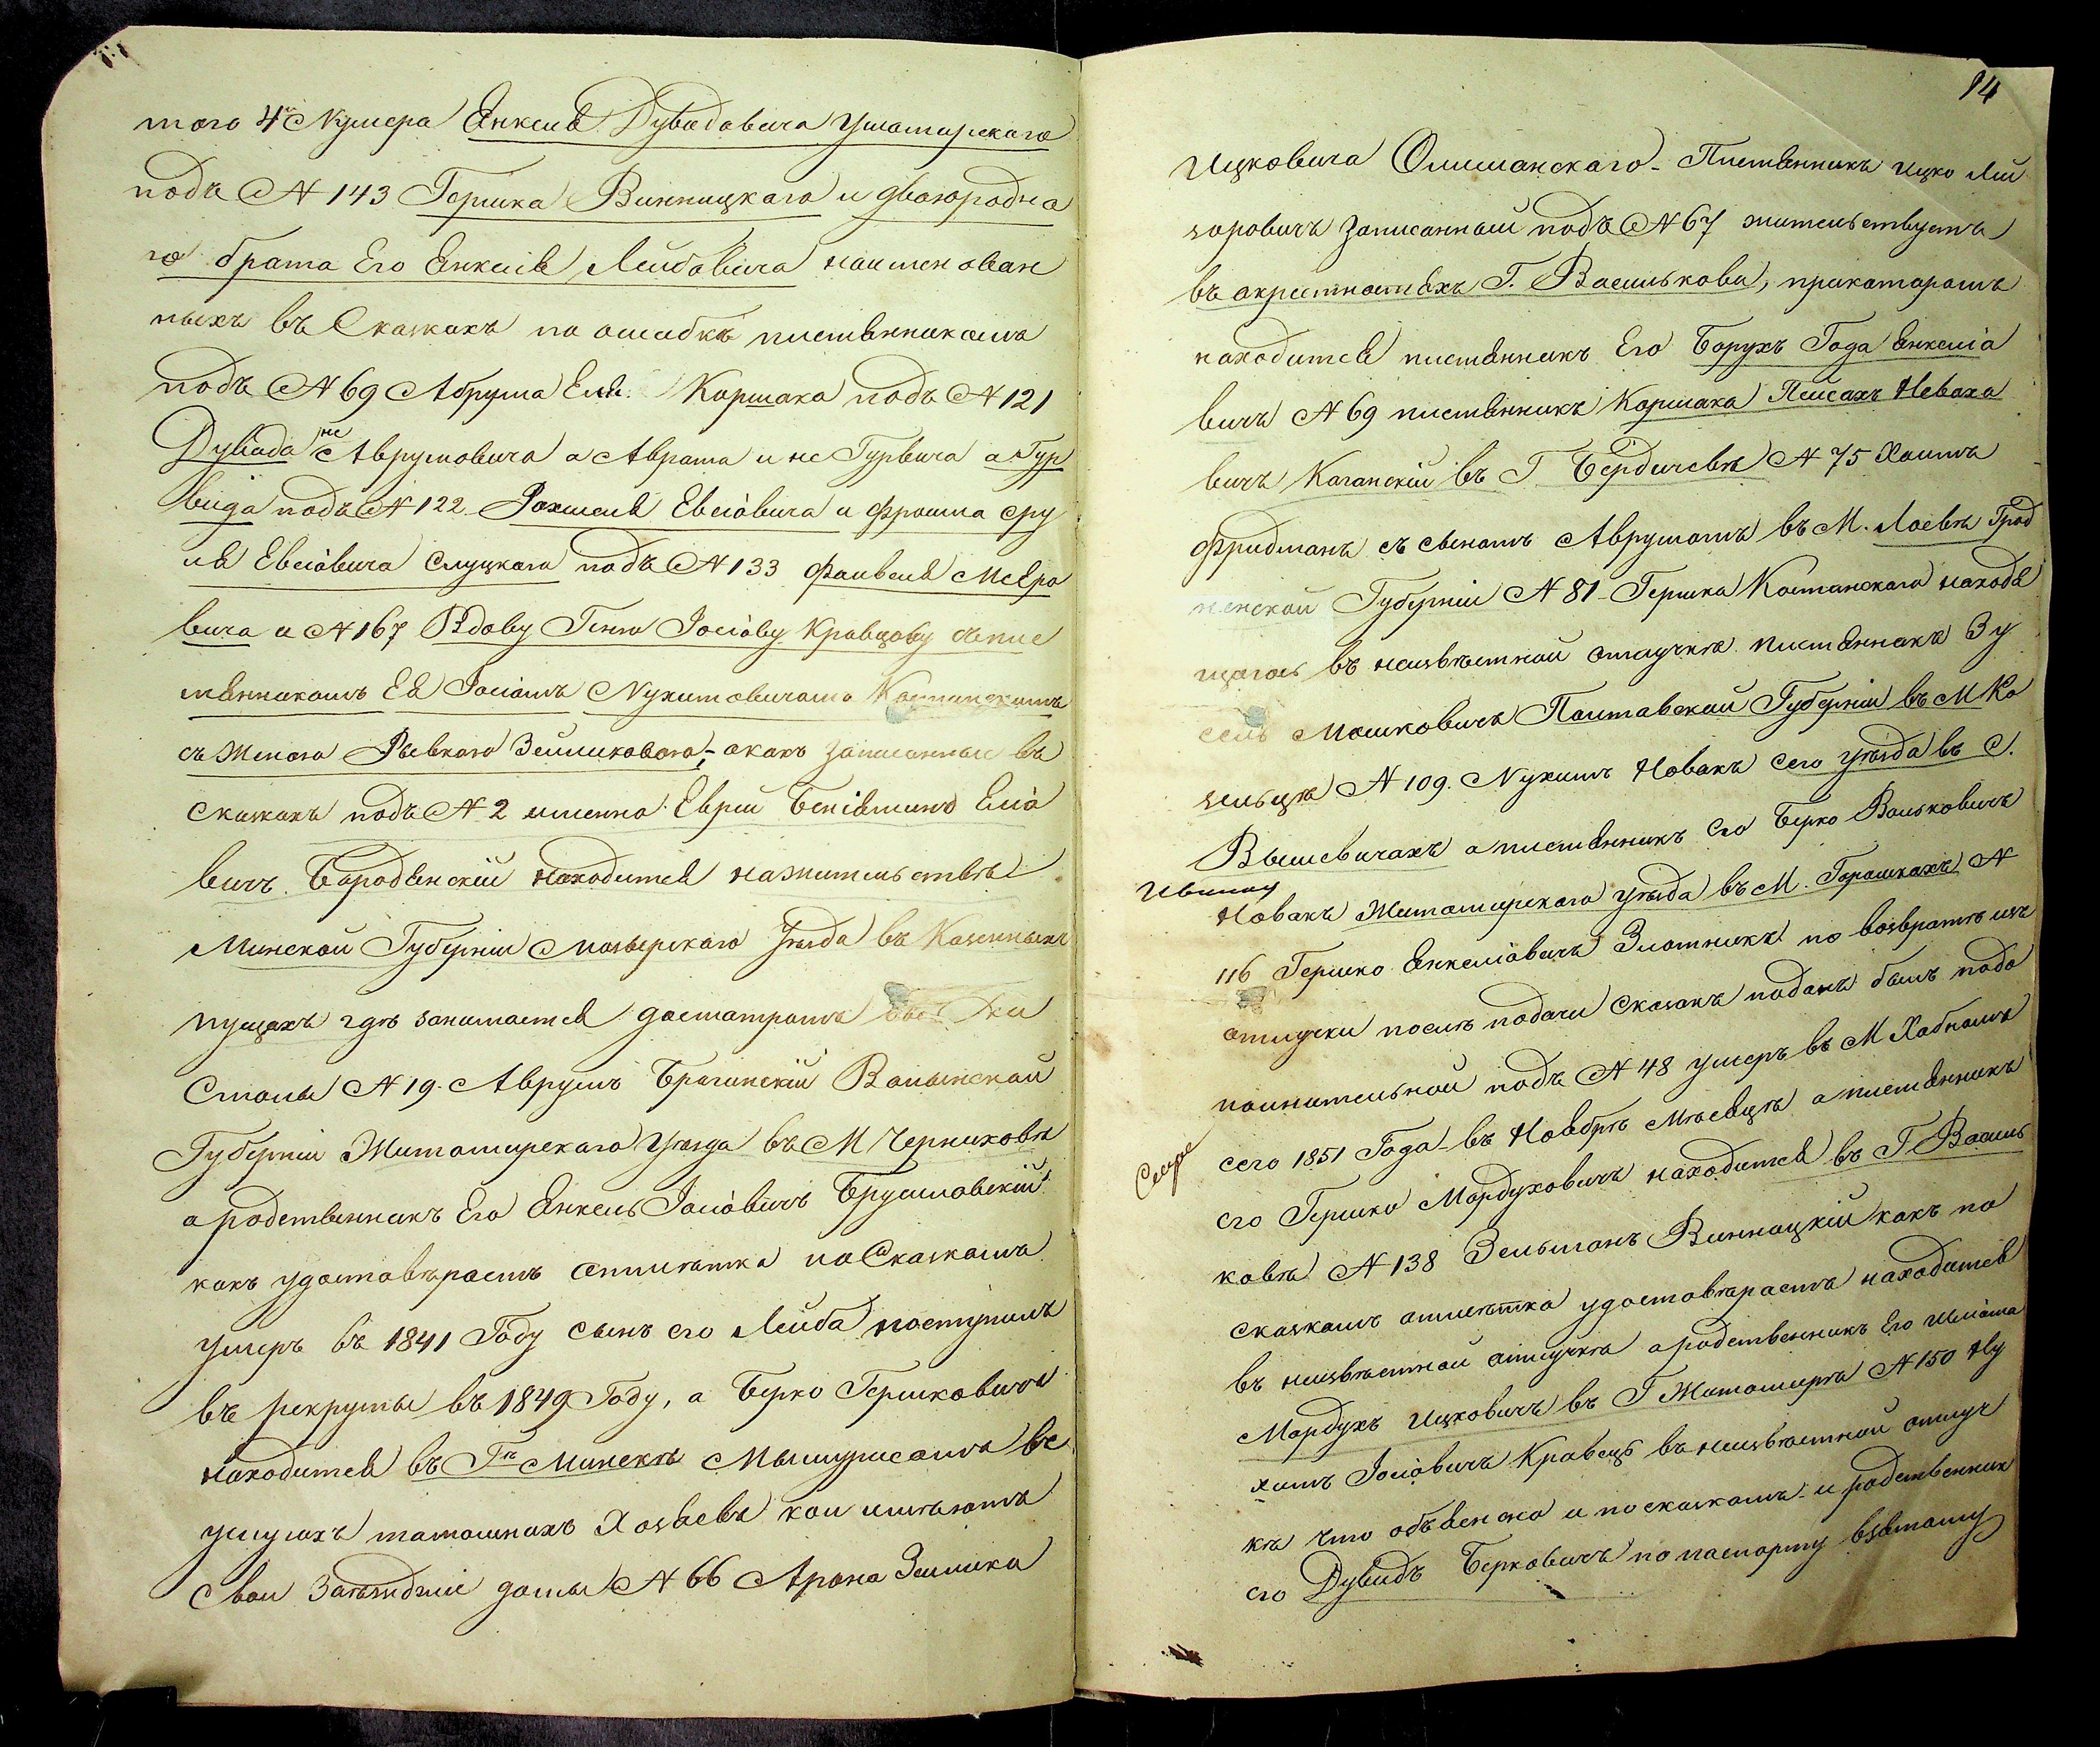 того 4й Нумера Янкеля Дувидовича Ушомирскаго
подъ № 143 Гершка Винницкаго и двоюродна
го брата Его Янкеля Лейбовича наименован
ныхъ въ Сказкахъ по ошибкѣ племянникомъ
подъ № 69 Абрума Коршака подъ № 121
Дувида не Аврумовича а Аврама и не Гурвича а Гур
вица подъ № 122 Рахмеля Евсіовича и Фроима Сру
ля Евсіовича Слуцкаго подъ № 133 Файвеля Меѣро
вича и № 167 Вдову Геню Іосіову Кравцову съ пле
мянникомъ Ея Іосіомъ Нухимовичомъ
съ женою Рывкою Зейликовою; а какъ записанные въ
сказкахъ подъ № 2 именно Еврей Беніяминъ Еліо
вичъ Бородянскій находится на жительствѣ
Минской Губерніи Мозырскаго Уѣзда въ Казенныхъ
пущахъ гдѣ занимается досмотромъ
Смолы № 19. Аврумъ Брагинскій Волынской
Губерніи Житомирскаго Уѣзда въ М Черняховѣ
а родственникъ Его Янкель Іосіовичъ Брусиловскій
какъ удостовѣряетъ отмѣтка по Сказкамъ
умеръ въ 1841 Году сынъ его Лейба поступилъ
въ рекруты въ 1849 Году, а Берко Гершковичъ
находится въ Гдѣ Минскѣ Мышуресомъ въ
услугахъ тамошнихъ Хозяевъ кои имѣютъ
свои Заѣзжіе домы № 66 Арона Зелика
14
Ицковича Олишанскаго - Племянникъ Ицко Лей
зоровичъ Записанный подъ № 67 жительствуетъ
въ окрестностяхъ Г. Василькова, при которомъ
находится племянникъ Его Борухъ Года Янкеліо
вичъ № 69 племянникъ Коршака Пейсахъ Невахо
вичъ Каганскій въ Г Бердичевѣ № 75 Хаимъ
Фридманъ съ сыномъ Аврумомъ въ М. Лоевѣ Грод
ненской Губерніи № 81 Гершка Костанскаго находя
щагось въ неизвѣстной отлучкѣ племянникъ Зу
сель Мошковичъ Полтавской Губерніи въ М Ко
зельцѣ № 109. Нухимъ Новакъ сего уѣзда въ С.
Вышевичахъ а племянникъ его Берко Вольковичъ
Новакъ Житомирскаго Уѣзда въ М. Горошкахъ №
116 Гершко Янкеліовичъ Злотникъ по возвратѣ изъ
отлучки послѣ подачи Сказокъ поданъ былъ подо
полнительной подъ № 48 умеръ въ М Хабномъ
сего 1851 Года въ Ноябрѣ Мѣсяцѣ а племянникъ
его Гершко Мордуховичъ находится въ Г Василь
ковѣ № 138 Зельманъ Винницкій какъ по
сказкамъ отмѣтка удостовѣряетъ находится
въ неизвѣстной отлучкѣ а родственникъ Его
Мордухъ Ицковичъ въ Г Житомирѣ № 150 Ну
химъ Іосіовичъ Кравецъ въ неизвѣстной отлуч
кѣ что объяснено и по сказкамъ и родственник
его Дувидъ Берковичъ по паспорту взятому